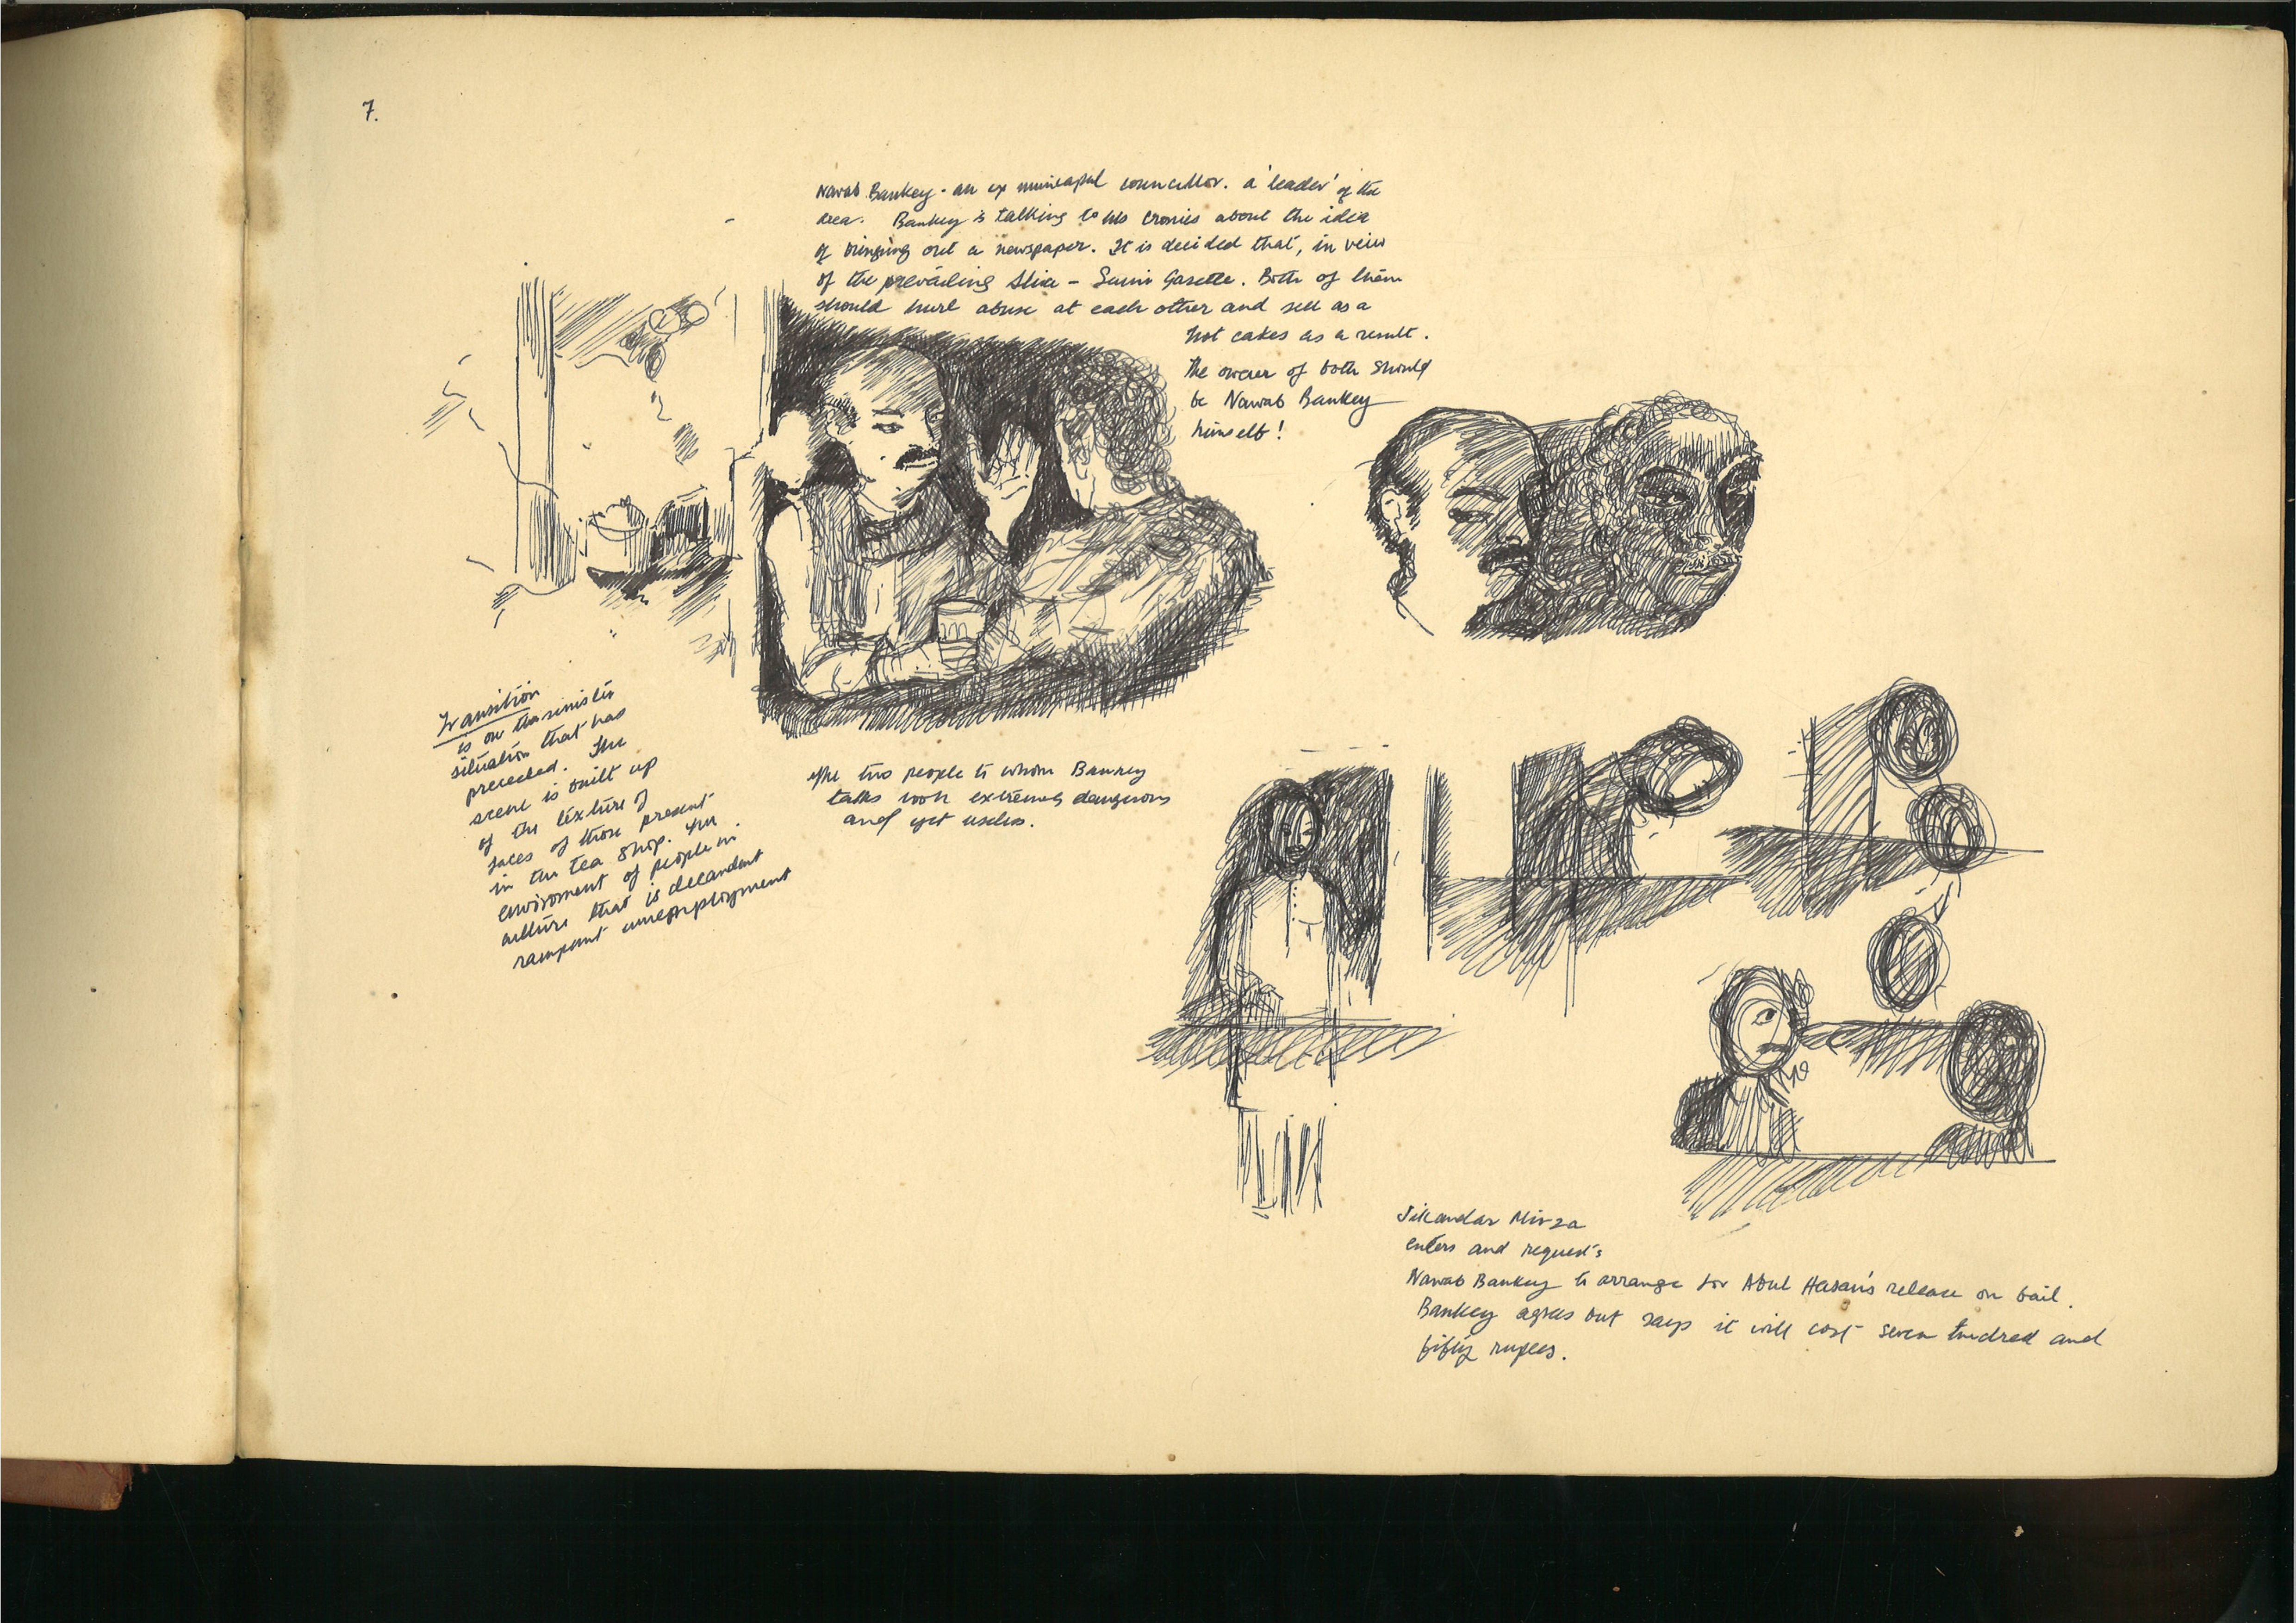 7.
Nawab Bankey - an ex municapal councillor. a 'leader' of the
area. Bankey is talking to his cronies about the idea
of bringing out a newspaper. It is decided that, in veiw
of the prevailing Shia - Sunni Gasette. Both of them
should hurl abuse at each other and sell as a
hot cakes as a result.
The owner of both should
be Nawab Bankey
himself!
Transition
is on the sinister
situation that has
preceeded. The
scene is built up
of the texture of
faces of those present
in the tea shop. The
enviroment of people in
culture that is decandent
rampant unemployment
The two people to whom Bankey
talks look extremely dangerous
and yet useless.
Sikandar Mirza
enters and request's
Nawab Bankey to arrange for Abul Hasan's release on bail.
Bankey agrees but says it will cost seven hundred and
fifty rupees.